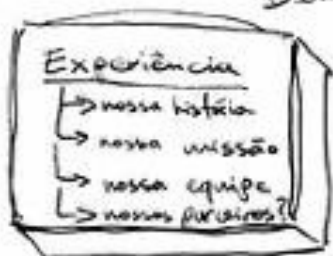 Experiência
→ nossa história
→ nossa missão
→ nossa equipe
→ nossos parceiros?